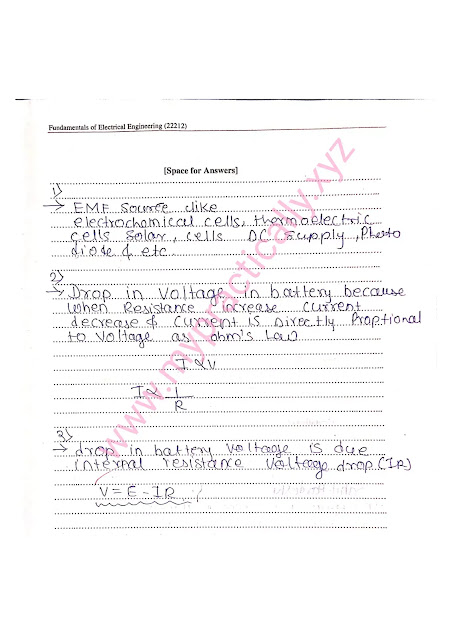 Fundamentals of Electrical Engineering (22212)
[Space for Answers]
1)
→ EMF Source like
electrochamical cells, thermoelectric
cells solar, cells DC supply, Photo
diode & etc
2)
→ Drop in voltage in battery because
when Resistance increase current
decrease & current is Directly Proptional
to voltage as ohm's law
I α V
I α 1
R
3)
→ drop in battery voltage is due
internal resistance voltage drop (IR)
V = E - IR
www.mypractically.xyz